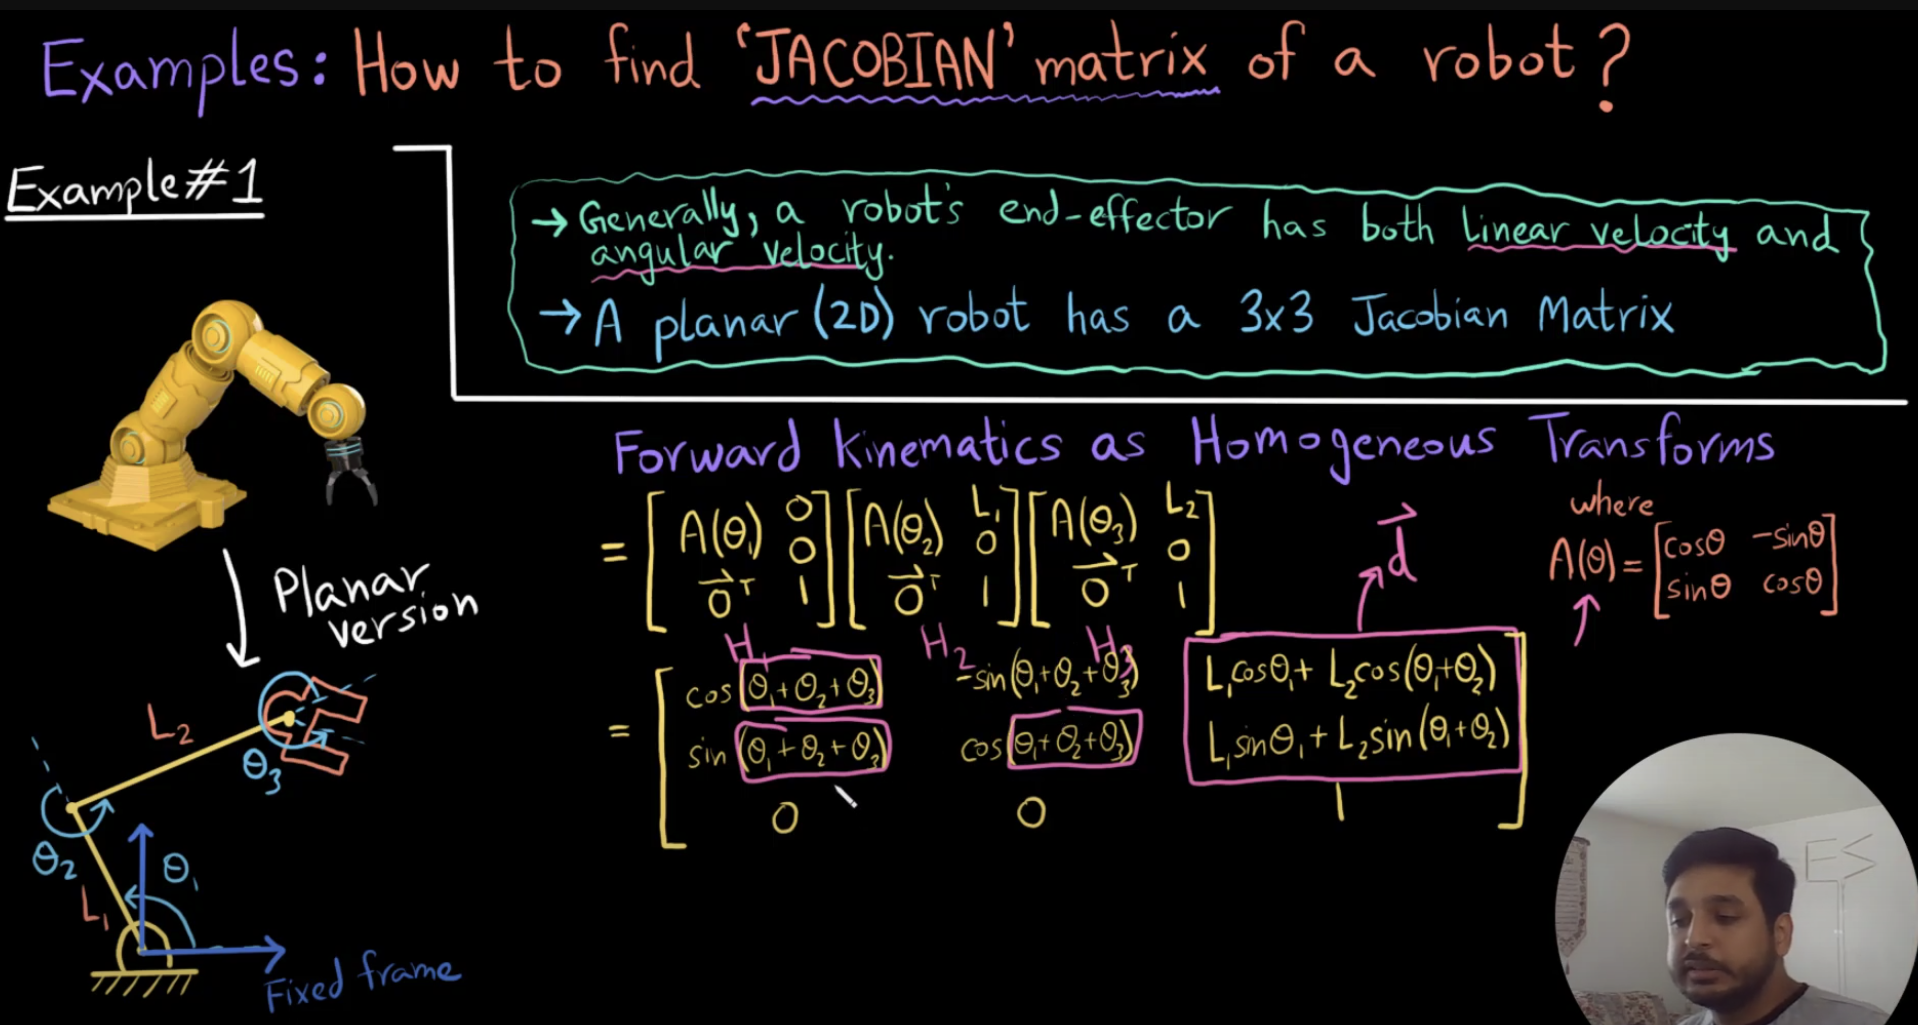 Examples: How to find 'JACOBIAN' matrix of a robot?
Example #1
→ Generally, a robot's end-effector has both linear velocity and
angular velocity.
→ A planar (2D) robot has a 3x3 Jacobian Matrix
Forward Kinematics as Homogeneous Transforms
= [A(θ₁) 0 0 0⃗ᵀ 1] [A(θ₂) L₁ 0 0⃗ᵀ 1] [A(θ₃) L₂ 0 0⃗ᵀ 1]
H₁ H₂ H₃
d⃗
where
A(θ) = [cosθ -sinθ
sinθ cosθ]
= [cos(θ₁+θ₂+θ₃) -sin(θ₁+θ₂+θ₃) L₁cosθ₁+ L₂cos(θ₁+θ₂)
sin(θ₁+θ₂+θ₃) cos(θ₁+θ₂+θ₃) L₁sinθ₁+L₂sin(θ₁+θ₂)
0 0 1]
Planar
version
L₂
θ₃
θ₂
θ₁
L₁
Fixed frame
ES